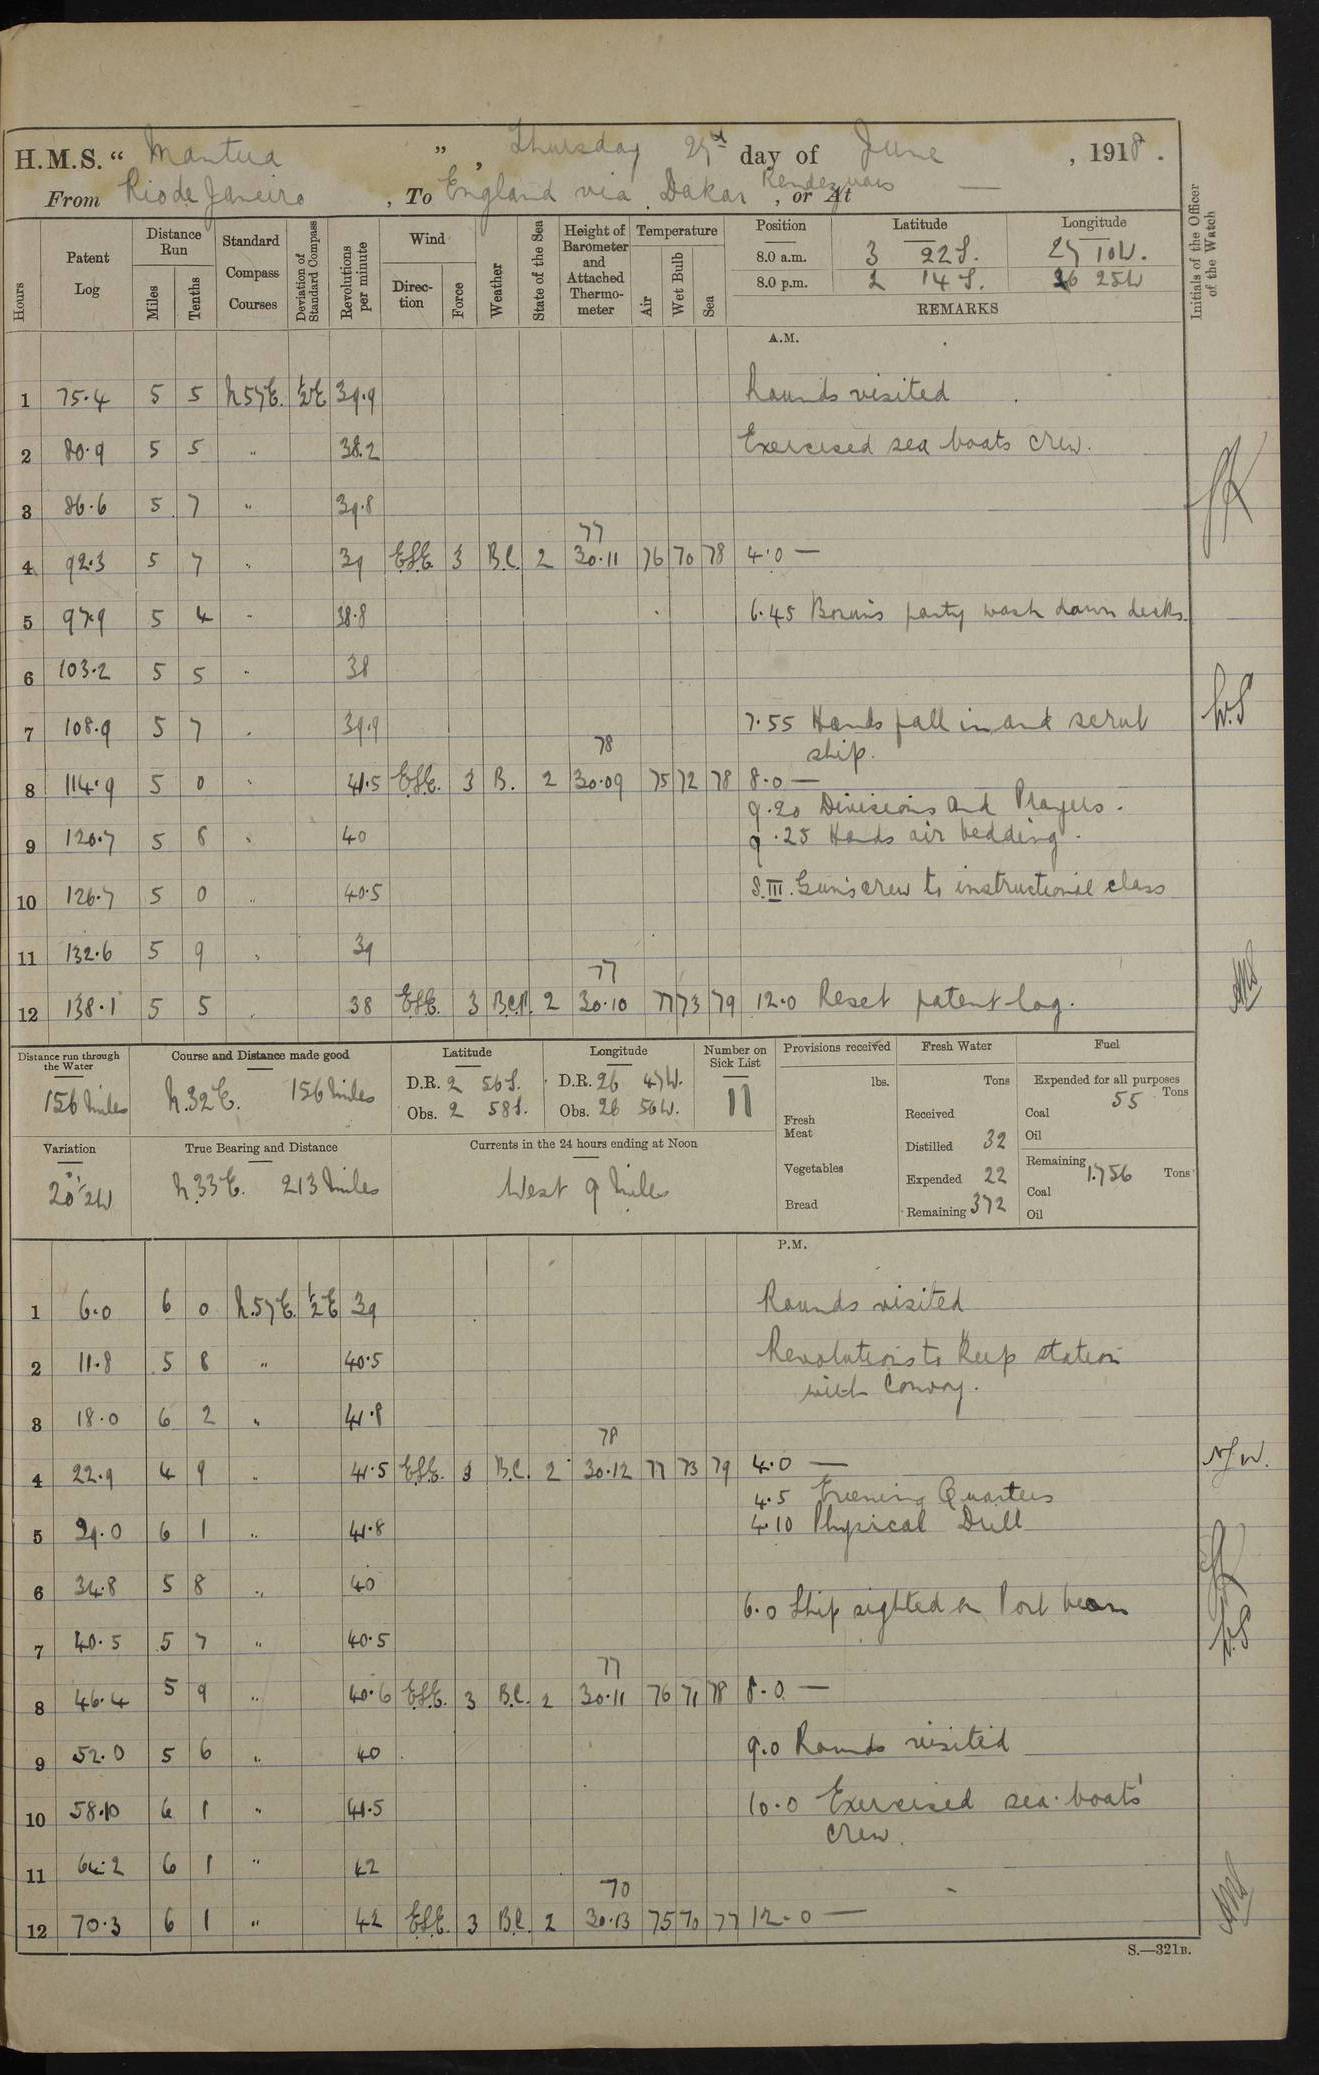 H.M.S. “ Mantua ” , Thursday 27th day of June , 1918 .
From Rio de Janeiro , To England via Dakar Rendezvous , or At —
Hours
Patent Log
Distance Run
Miles
Tenths
Standard Compass Courses
Deviation of Standard Compass
Revolutions per minute
Wind
Direction
Force
Weather
State of the Sea
Height of Barometer and Attached Thermometer
Temperature
Air
Wet Bulb
Sea
Position Latitude Longitude
8.0 a.m. 3 22 S. 27 10 W.
8.0 p.m. 2 14 S. 26 25 W
REMARKS
Initials of the Officer of the Watch
A.M.
1 75.4 5 5 N57E. ½E 39.9 Rounds visited
2 80.9 5 5 " 38.2 Exercised sea boats crew.
3 86.6 5 7 " 39.8
77
4 92.3 5 7 " 39 ESE. 3 B.C. 2 30.11 76 70 78 4.0 —
5 97.9 5 4 " 38.8 6.45 Bosuns party wash down decks.
6 103.2 5 5 " 38
7 108.9 5 7 " 39.9 7.55 Hands fall in and scrub W.S
78 ship.
8 114.9 5 0 " 41.5 ESE. 3 B. 2 30.09 75 72 78 8.0 —
9.20 Divisions and Prayers.
9 120.7 5 8 " 40 9.25 Hands air bedding.
10 126.7 5 0 " 40.5 S.III. Guns crew to instructional class
11 132.6 5 9 " 39
77
12 138.1 5 5 " 38 ESE. 3 B.C.P. 2 30.10 77 73 79 12.0 Reset patent log.
Distance run through the Water
156 Miles
Course and Distance made good
N.32E. 156 Miles
Latitude
D.R. 2 56 S.
Obs. 2 58 S.
Longitude
D.R. 26 47 W.
Obs. 26 56 W.
Number on Sick List
11
Provisions received
lbs.
Fresh Meat
Vegetables
Bread
Fresh Water
Tons
Received
Distilled 32
Expended 22
Remaining 372
Fuel
Expended for all purposes
55 Tons
Coal
Oil
Remaining 1.756 Tons
Coal
Oil
Variation
20½W
True Bearing and Distance
N.33E. 213 Miles
Currents in the 24 hours ending at Noon
West 9 Miles
P.M.
1 6.0 6 0 N.57E. ½E 39 Rounds visited
2 11.8 5 8 " 40.5 Revolutions to Keep station
with Convoy.
3 18.0 6 2 " 41.8
78
4 22.9 4 9 " 41.5 ESE. 3 B.C. 2 30.12 77 73 79 4.0 —
4.5 Evening Quarters
5 29.0 6 1 " 41.8 4.10 Physical Drill
6 34.8 5 8 " 40
6.0 Ship sighted on Port beam
7 40.5 5 7 " 40.5
77
8 46.4 5 9 " 40.6 ESE. 3 B.C. 2 30.11 76 71 78 8.0 —
9 52.0 5 6 " 40 9.0 Rounds visited
10 58.10 6 1 " 41.5 10.0 Exercised sea boats'
crew.
11 64.2 6 1 " 42
70
12 70.3 6 1 " 42 ESE. 3 B.C. 2 30.13 75 70 77 12.0 —
S.—321B.